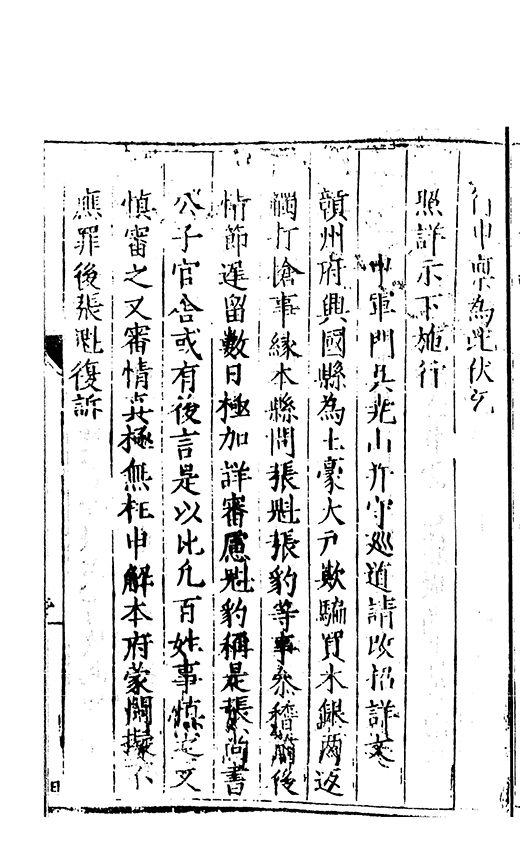 行申稟為此伏乞
照詳示下施行
申軍門吳兆山并守巡道請改招詳文
贛州府興國縣為土豪大戶欺騙買木銀兩返
捆打搶事緣本縣問張魁張豹等事叅稽前後
情節遲留數日極加詳審慮魁豹稱是張尚書
公子官舍或有後言是以比凡百姓事慎之又
慎審之又審情真極無枉申解本府蒙開擬不
應罪後張魁復訴